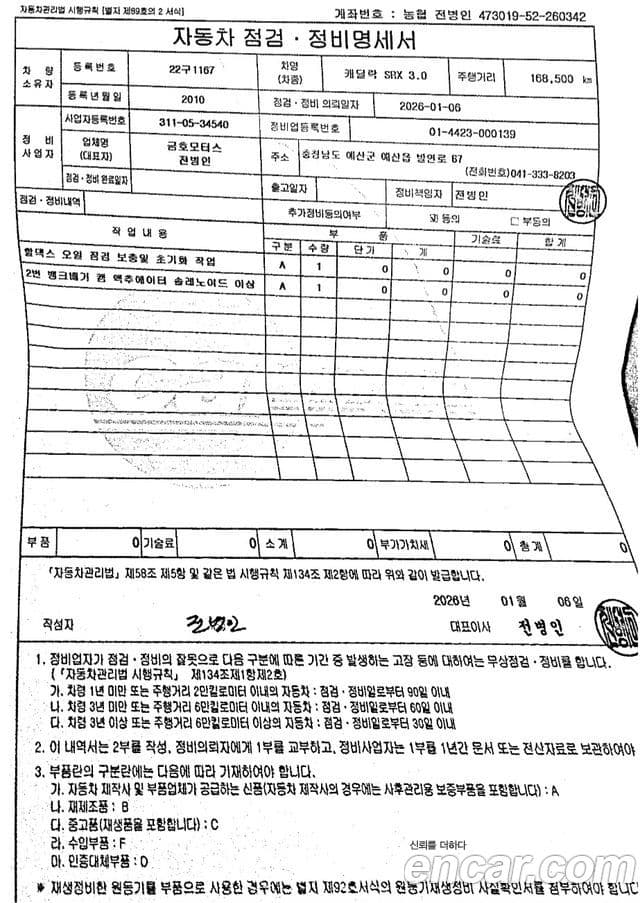 자동차관리법 시행규칙 [별지 제89호의 2 서식]
계좌번호 : 농협 전병인 473019-52-260342
자동차 점검·정비명세서
차량 소유자 등록번호 22구1167 차명(차종) 캐딜락 SRX 3.0 주행거리 168,500 km
등록년월일 2010 점검·정비 의뢰일자 2026-01-06
정비 사업자 사업자등록번호 311-05-34540 정비업등록번호 01-4423-000139
업체명(대표자) 금호모터스 전병인 주소 충청남도 예산군 예산읍 벚언로 67
(전화번호)041-333-8203
점검·정비 완료일자 출고일자 정비책임자 전병인
점검·정비내역 추가정비동의여부 ☑ 동의 □ 부동의
작업내용 부품 기술료 합계
구분 수량 단가 계
할덱스 오일 점검 보충및 초기화 작업 A 1 0 0 0 0
2번 뱅크배기 캠 액추에이터 솔레노이드 이상 A 1 0 0 0 0
부품 0 기술료 0 소계 0 부가가치세 0 총계 0
「자동차관리법」제58조 제5항 및 같은 법 시행규칙 제134조 제2항에 따라 위와 같이 발급합니다.
2026년 01월 06일
작성자 전병인 대표이사 전병인
1. 정비업자가 점검·정비의 잘못으로 다음 구분에 따른 기간 중 발생하는 고장 등에 대하여는 무상점검·정비를 합니다.
(「자동차관리법 시행규칙」 제134조제1항제2호)
가. 차령 1년 미만 또는 주행거리 2만킬로미터 이내의 자동차 : 점검·정비일로부터 90일 이내
나. 차령 3년 미만 또는 주행거리 6만킬로미터 이내의 자동차 : 점검·정비일로부터 60일 이내
다. 차령 3년 이상 또는 주행거리 6만킬로미터 이상의 자동차 : 점검·정비일로부터 30일 이내
2. 이 내역서는 2부를 작성, 정비의뢰자에게 1부를 교부하고, 정비사업자는 1부를 1년간 문서 또는 전산자료로 보관하여야
3. 부품란의 구분란에는 다음에 따라 기재하여야 합니다.
가. 자동차 제작사 및 부품업체가 공급하는 신품(자동차 제작사의 경우에는 사후관리용 보증부품을 포함합니다) : A
나. 재제조품 : B
다. 중고품(재생품을 포함합니다) : C
라. 수입부품 : F
마. 인증대체부품 : D
신뢰를 더하다
encar.com
* 재생정비한 원동기를 부품으로 사용한 경우에는 별지 제92호서식의 원동기재생정비 사실확인서를 첨부하여야 합니다